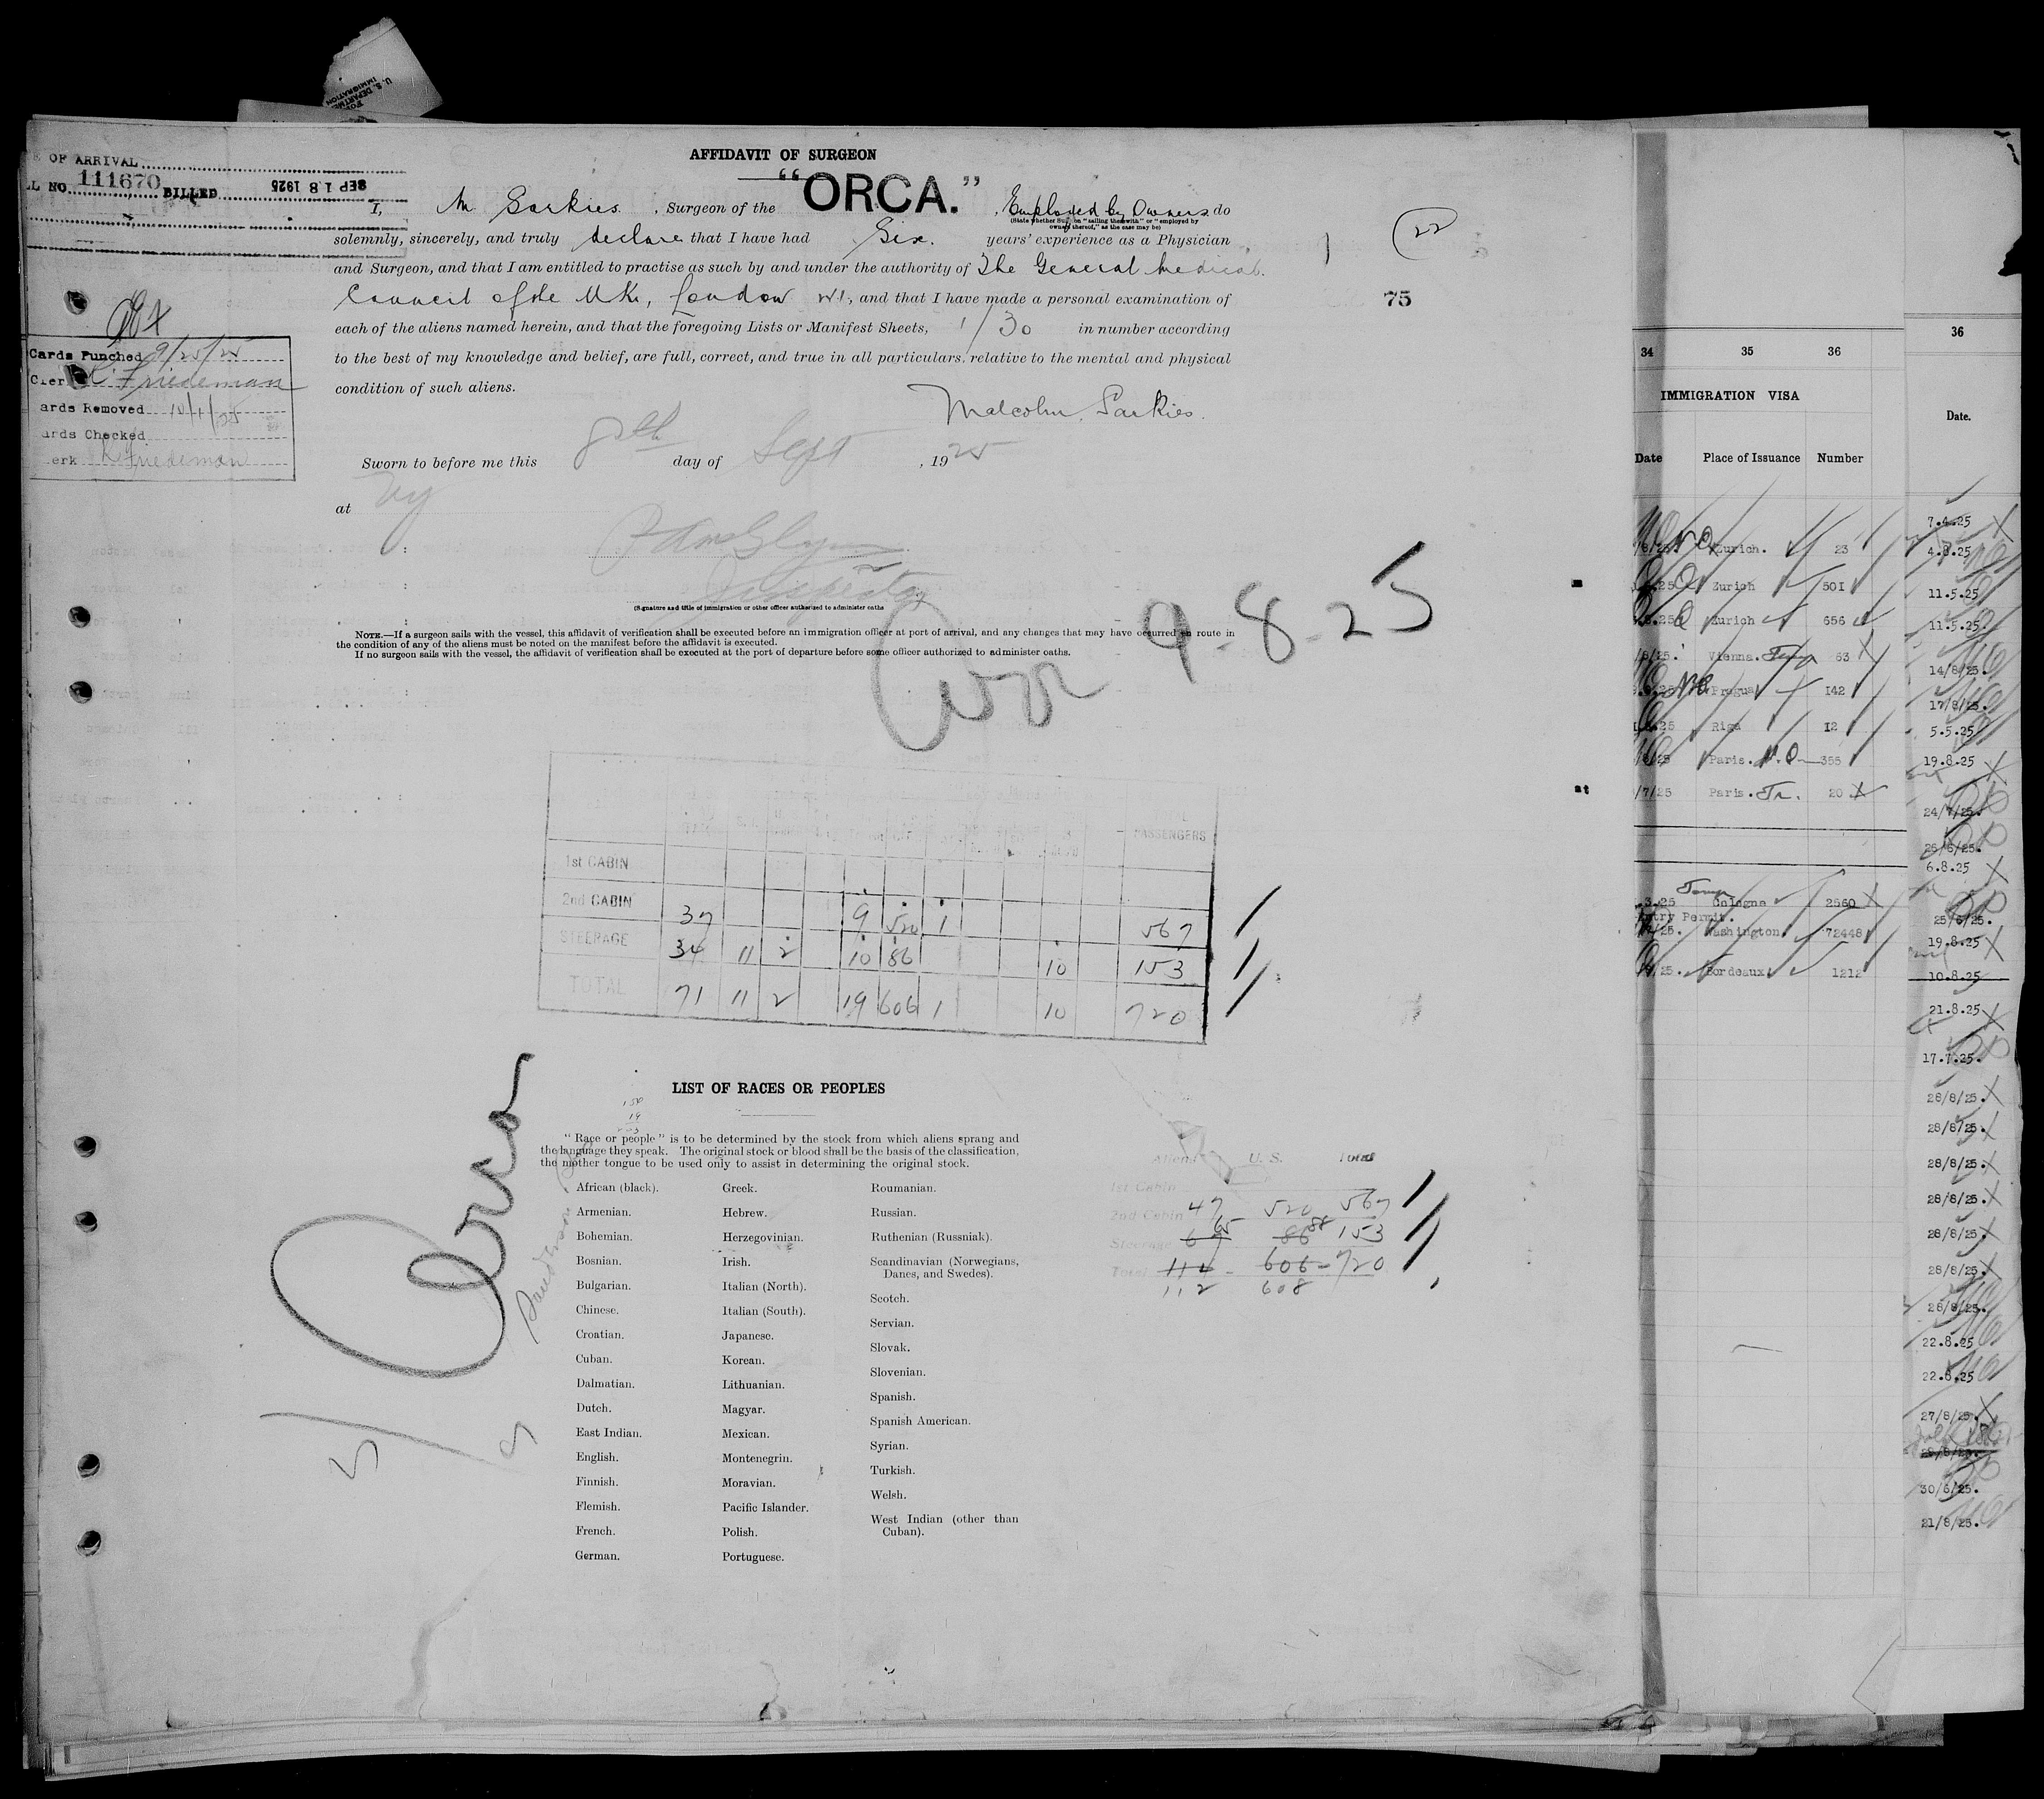 U. S. DEPARTME
IMMIGRATION
OF ARRIVAL
LL NO. 111670 BILLED SEP 18 1925
AFFIDAVIT OF SURGEON
"ORCA."
I, M Sarkies. , Surgeon of the , Employed by Owners do
(State whether Surgeon "sailing therewith" or "employed by
owners thereof," as the case may be)
solemnly, sincerely, and truly declare that I have had Six. years' experience as a Physician
and Surgeon, and that I am entitled to practise as such by and under the authority of The General Medical
Council of the UK, London W1, and that I have made a personal examination of
each of the aliens named herein, and that the foregoing Lists or Manifest Sheets, 1/30 in number according
to the best of my knowledge and belief, are full, correct, and true in all particulars relative to the mental and physical
condition of such aliens.
Malcolm Sarkies.
Sworn to before me this 8th day of Sept , 1925
at NY
Inspector
(Signature and title of immigration or other officer authorized to administer oaths
22
75
Cards Punched 9/25/25
Clerk K. Friedeman
ards Removed 10/1/25
ards Checked
erk K Friedeman
NOTE.—If a surgeon sails with the vessel, this affidavit of verification shall be executed before an immigration officer at port of arrival, and any changes that may have occurred en route in
the condition of any of the aliens must be noted on the manifest before the affidavit is executed.
If no surgeon sails with the vessel, the affidavit of verification shall be executed at the port of departure before some officer authorized to administer oaths.
Arr 9-8-25
PASSENGERS
1st CABIN
2nd CABIN 37 9 520 1 567
STEERAGE 34 11 2 10 86 10 153
TOTAL 71 11 2 19 606 1 10 720
Orca
LIST OF RACES OR PEOPLES
"Race or people" is to be determined by the stock from which aliens sprang and
the language they speak. The original stock or blood shall be the basis of the classification,
the mother tongue to be used only to assist in determining the original stock.
African (black).
Armenian.
Bohemian.
Bosnian.
Bulgarian.
Chinese.
Croatian.
Cuban.
Dalmatian.
Dutch.
East Indian.
English.
Finnish.
Flemish.
French.
German.
Greek.
Hebrew.
Herzegovinian.
Irish.
Italian (North).
Italian (South).
Japanese.
Korean.
Lithuanian.
Magyar.
Mexican.
Montenegrin.
Moravian.
Pacific Islander.
Polish.
Portuguese.
Roumanian.
Russian.
Ruthenian (Russniak).
Scandinavian (Norwegians,
Danes, and Swedes).
Scotch.
Servian.
Slovak.
Slovenian.
Spanish.
Spanish American.
Syrian.
Turkish.
Welsh.
West Indian (other than
Cuban).
Aliens U. S. Total
1st Cabin
2nd Cabin 47 520 567
Steerage 67 65 86 88 153
Total 114 - 606 - 720
112 608
at
34 35 36
IMMIGRATION VISA
Date Place of Issuance Number
Zurich. 23
Zurich 501
Zurich 656
Vienna. 63
Prague 142
Riga 12
Paris. 355
/7/25 Paris. Tr. 20
Temp
.3.25 Cologne 2560
Entry Permit.
Washington. 72448
/25. Bordeaux 1212
36
Date.
7.4.25
4.8.25
11.5.25
11.5.25
14/8/25.
17/8/25.
5.5.25
19.8.25
24/7/25.
26/6/25.
6.8.25
25/6/25.
19.8.25
10.8.25
21.8.25
17.7.25.
28/8/25.
28/8/25.
28/8/25.
28/8/25.
28/8/25.
28/8/25.
28/8/25.
22.8.25
22.8.25
27/8/25.
30/6/25.
21/8/25.